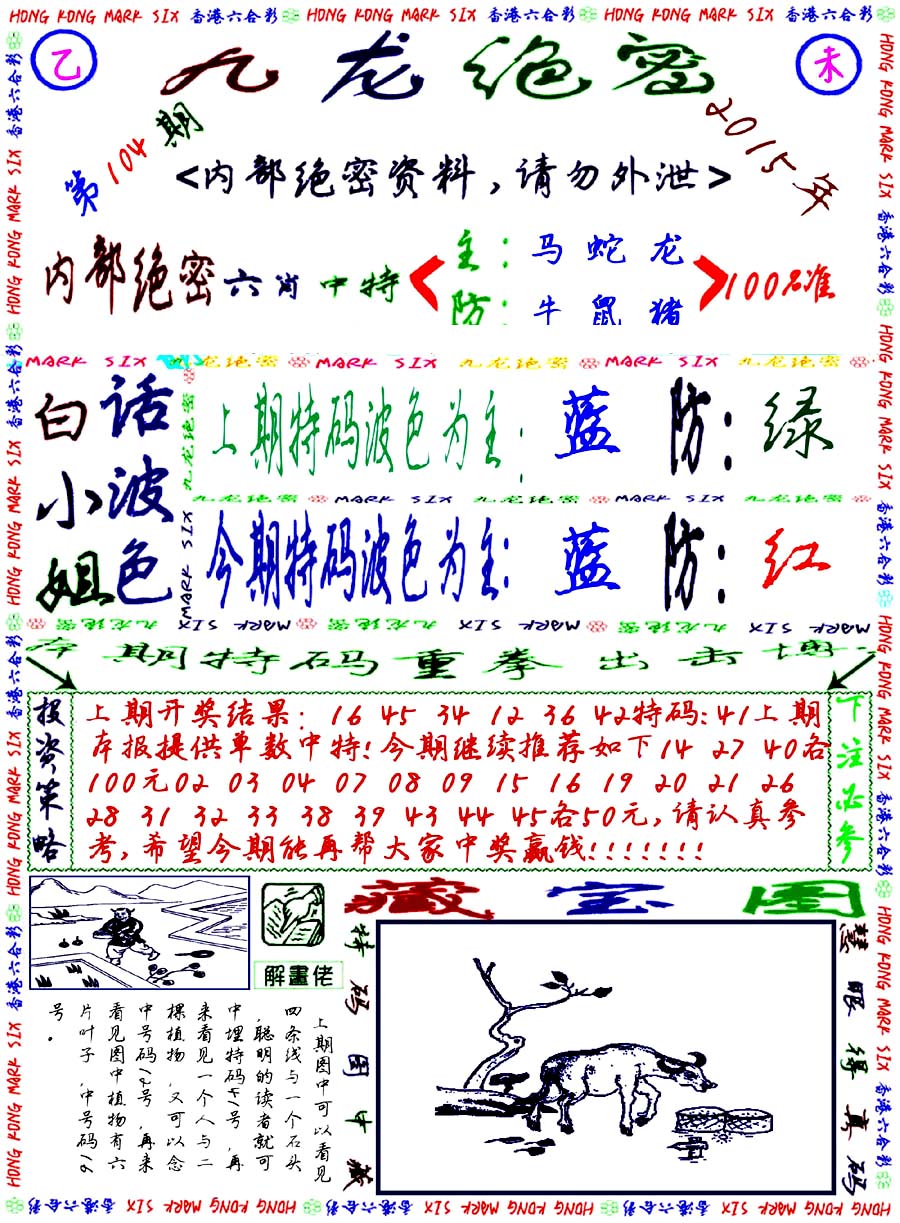 HONG KONG MARK SIX 香港六合彩 HONG KONG MARK SIX 香港六合彩 HONG KONG MARK SIX 香港六合彩
乙 九龙绝密 未
第104期
2015年
<内部绝密资料,请勿外泄>
内部绝密六肖中特
主:马 蛇 龙
防:牛 鼠 猪
100%准
MARK SIX 九龙绝密 MARK SIX 九龙绝密 MARK SIX 九龙绝密
白话小波姐色
九龙绝密 MARK SIX
上期特码波色为主: 蓝 防: 绿
九龙绝密 MARK SIX 九龙绝密 MARK SIX 九龙绝密
今期特码波色为主: 蓝 防: 红
九龙绝密 MARK SIX 九龙绝密 MARK SIX 九龙绝密 MARK SIX
本期特码重拳出击博
投资策略
上期开奖结果: 16 45 34 12 36 42特码:41上期
本报提供单数中特!今期继续推荐如下14 27 40各
100元02 03 04 07 08 09 15 16 19 20 21 26
28 31 32 33 38 39 43 44 45各50元,请认真参
考,希望今期能再帮大家中奖赢钱!!!!!!!
下注必参
解畫佬
藏宝图
上期图中可以看见
四条线与一个石头
,聪明的读者就可
中埋特码41号,再
来看见一个人与二
棵植物,又可以念
中号码12号,再来
看见图中植物有六
片叶子,中号码16
号。
特码图中藏
慧眼得真码
HONG KONG MARK SIX 香港六合彩 HONG KONG MARK SIX 香港六合彩 HONG KONG MARK SIX 香港六合彩